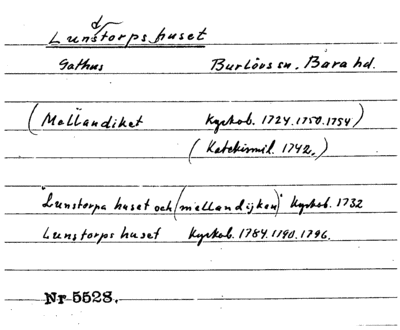 d
Lunstorps huset
Gathus Burlövs sn. Bara hd.
(Mellandiket Kyrkob. 1724.1750.1754)
(Katekismil. 1742.)
"Lunstorpa huset och (mellandijken)" Kyrkob. 1732
Lunstorps huset Kyrkob. 1784.1790.1796.
Nr 5528.